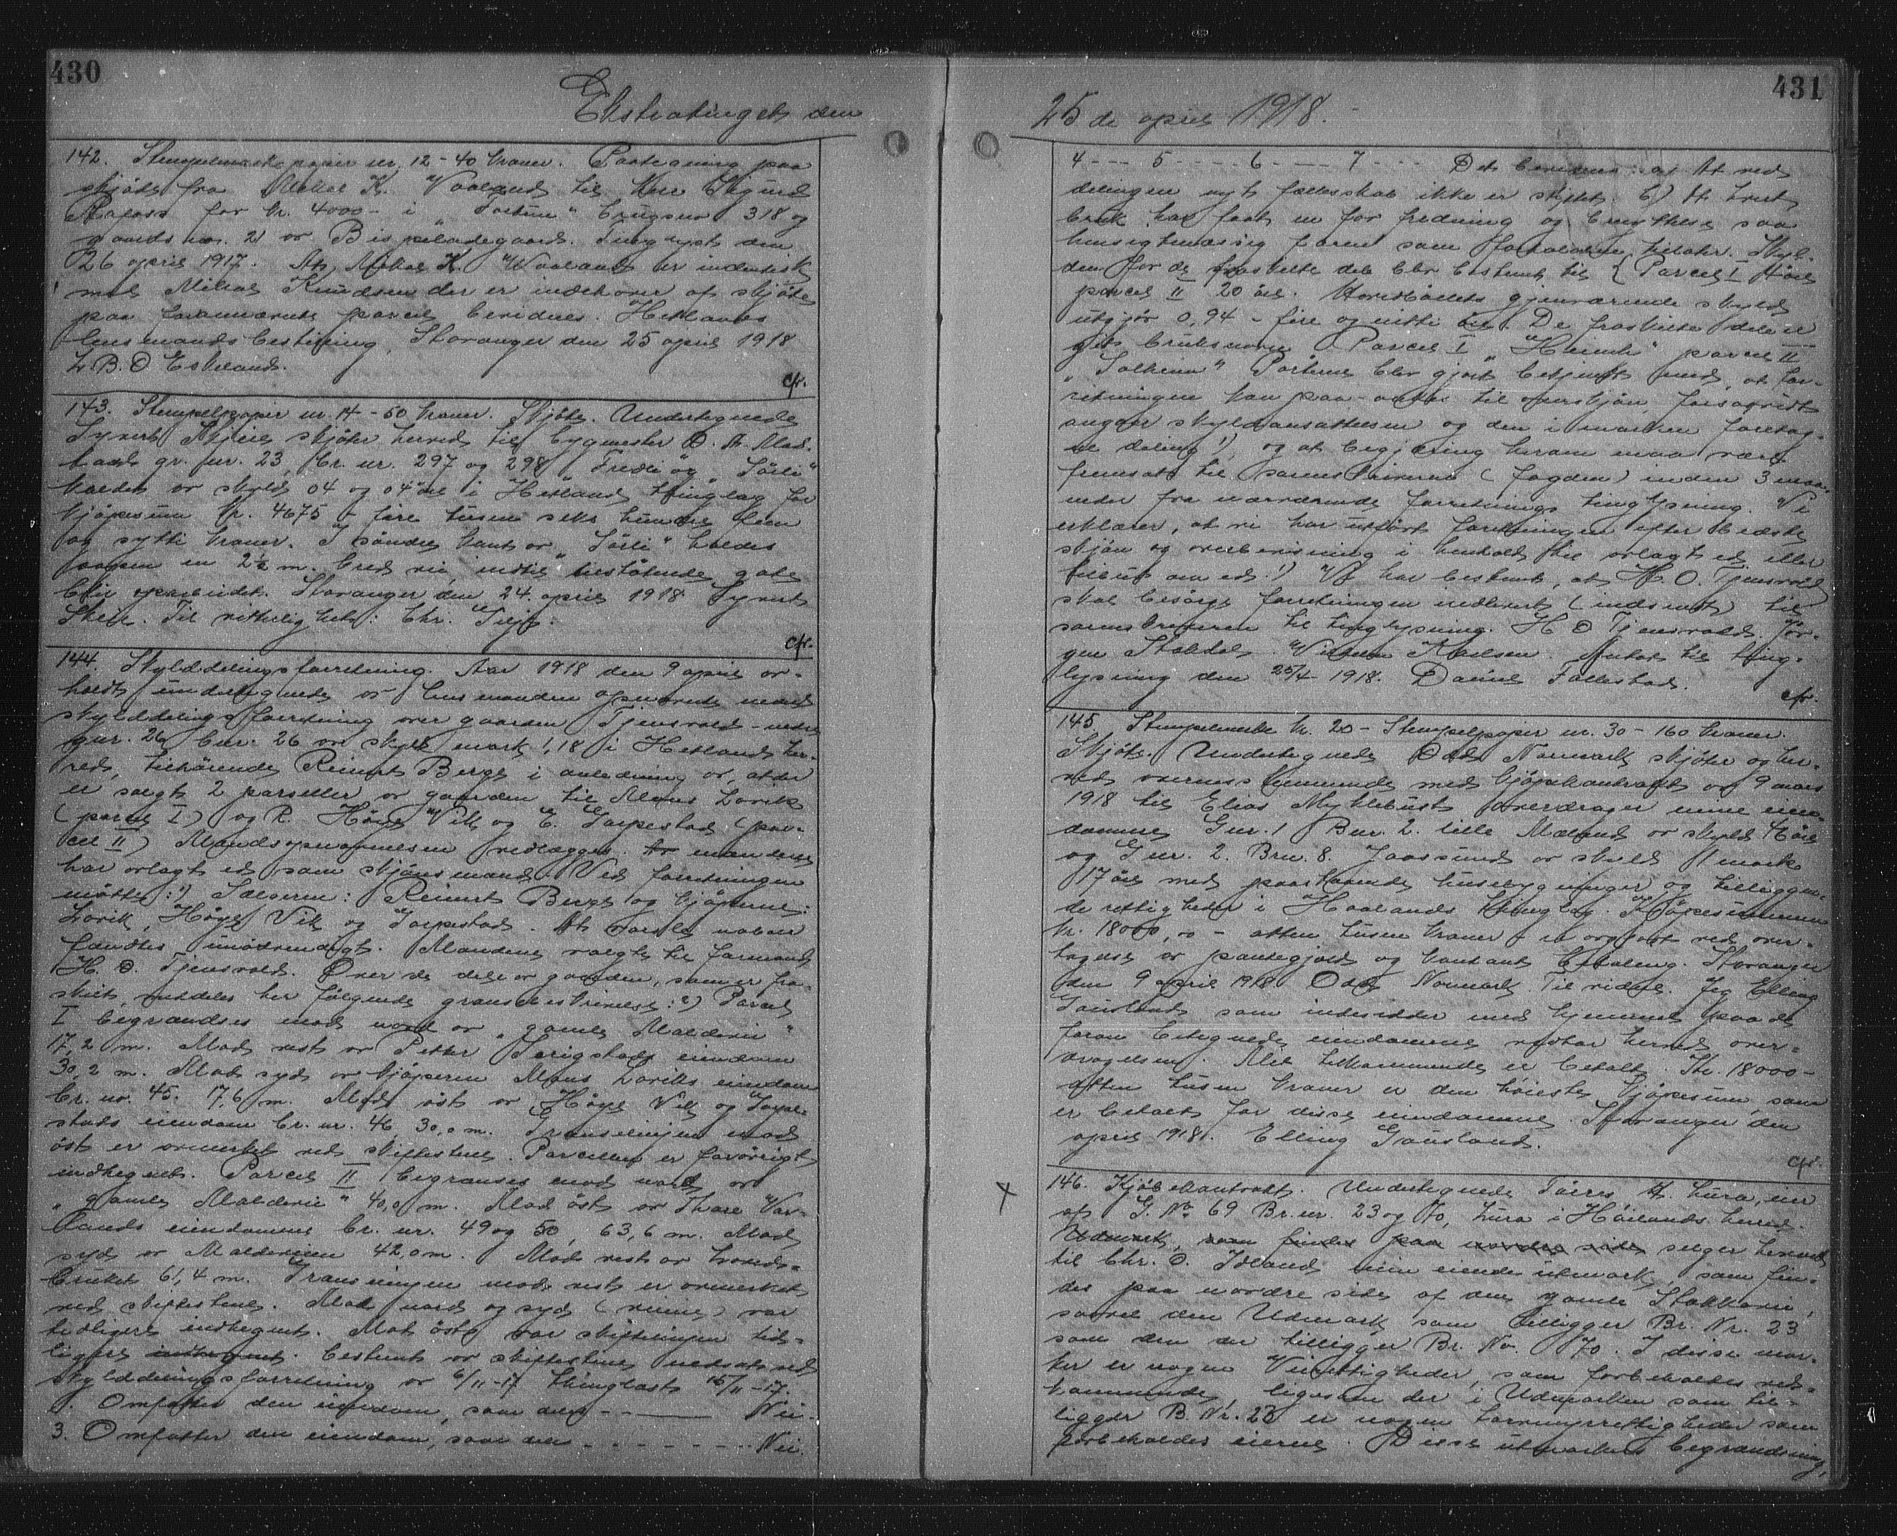 430
Ekstratinget den
142. Stempelmerkepapir nr. 12 - 40 kroner. Paategning paa
skjöte fra Mikal K. Vaaland til Kare Sigurd
for kr. 4000 - i "Soltun" bruksnr 318 og
gaards no. 2 av Bispeladegaard. Tinglyst den
26 april 1917. At Mikal K. Vaaland er indentisk
med Mikal Knudsen der er indehaver af skjöte
paa forannævnte parcel bevidnes. Hetlands
lensmandsbestilling, Stavanger den 25 april 1918
L. B. O Eskeland.
cfr.
143. Stempelpapir nr. 14 - 50 kroner. Skjöte. Undertegnede
Syvert skjöter herved til bygmester O. A. Mad-
land gr. nr. 23, br. nr. 297 og 298 "Fredli" og "Sörli"
kaldet av skyld 04 og 04 öre i Hetland tinglag for
kjöpesum kr. 4675 - fire tusen seks hundre fem
og sytti kroner. I söndre kant av "Sörli" holdes
aapen en 2½ m. bred vei, indtil tilstötende gate
blir oparbeidet. Stavanger den 24. april 1918 Syvert
Til vitterlighet: Chr. Tilje.
cfr.
144 Skylddelingsforretning. Aar 1918 den 9 april av-
holdt undertegnede av lensmanden opnævnte mænd
skylddelingsforretning over gaarden Tjensvold nedre
gnr. 26 bnr. 26 av skyld mark 1,18 i Hetland her-
red, tilhörende Reinert Berge i anledning av, at der
er solgt 2 parseller av gaarden til Mons Lovik
(parcel I) og R. Höye Vik og E. Torpestad (par-
cel II) Mandsopnævnelsen vedlægges. Mændene
har avlagt ed som skjönsmænd. Ved forretningen
mötte: 1) Sælgeren: Reinert Berge og kjöperne:
Lovik, Höye Vik og Torpestad. At varsle naboer
fandtes unödvendigt. Mændene valgte til formand
H. O. Tjensvold. Over de dele av gaarden, som er fra-
skilt, meddeles her fölgende grænsebeskrivelse: 2) Parcel
I begrændses mod nord av "gamle Madlavei"
17,2 m. Mod vest av Petter eiendom
30,2 m. Mod syd av kjöperen Mons Loviks eiendom
br. nr. 45. 17,6 m. Mod öst av Höye Vik og Torpe-
stads eiendom br. nr. 46 30,0 m. Grænselinjen mod
öst er avmerket ved skiftestene. Parcellen er forövrigt
indhegnet. Parcel II begrænses mod nord av
"gamle Madlavei" 40,0 m. Mod öst av Thore Var-
lands eiendomme br. nr. 49 og 50, 63,6 m. Mod
syd av Madlaveien 42,0 m. Mod vest av hoved-
bruket 61,4 m. Grænselinjen mod vest er avmerket
ved skiftestene. Mod nord og syd (veiene) var
tidligere indhegnet. Mod öst var skiftelinjen tid-
ligere indhegnet. bestemt av skiftestene nedsat ved
skylddelingsforretning av 6/11-17 thinglæst 15/11-17.
Omfatter den eiendom, som deles - - - Nei.
3. Omfatter den eiendom, som deles - - - - - - - Nei
431
25 de april 1918.
4 - - - 5 - - - - 6 - - - 7 - - - Det bevidnes: a) At ved
delingen nyt fællesskab ikke er stiftet. b) At hvert
bruk har faat en for fredning og benyttelse saa
hensigtsmæssig form som forholdene tillater. Skyl-
den for de fraskilte dele blev bestemt til { Parcel I 4 öre
parcel II 20 öre. Hovedbölets gjenværende skyld
utgjör 0,94 - fire og nitti öre. De fraskilte dele er
git bruksnavn Parcel I "Heimli" parcel II
"Solheim" Parterne blev gjort bekjendt med, at for-
retningen kan paa-ankes til overskjön, forsaavidt
angaar skyldansættelsen og den i marken foretag-
ne deling 1), og at begjæring herom maa være
fremsat til sorenskriveren (fogden) inden 3 maa-
neder fra nærværende forretnings tinglysning. Vi
erklærer, at vi har utfört forretningen efter bedste
skjön og overbevisning i henhold til avlagt ed eller
tilbud om ed. 1) Vi har bestemt, at H. O. Tjensvold
skal besörge forretningen indlevert (indsendt) til
sorenskriveren til tinglysning. H. O Tjensvold. Jör-
gen Stokdal. Vilhelm Axelsen. Mottat til ting-
lysning den 25/4 1918. Daniel Fallestad.
cfr.
145 Stempelmerke kr. 20 - Stempelpapir nr. 30 - 160 kroner.
Skjöte. Undertegnede Odd Normark skjöter og her-
ved i overensstemmende med kjöpekontrakt av 9 mars
1918 til Elias Myklebust overdrager mine eien-
domme Gnr. 1 Bnr. 2. lille Mæland av skyld 4 öre
og Gnr. 2. Brn. 8. Jaassund av skyld 1 mark
17 öre med paastaaende husebygninger og tilliggen-
de rettigheder i Haalands thinglag. Kjöpesummen
kr. 18000,00 - atten tusen kroner - er avgjort ved over-
tagelse av pantegjæld og kontant betaling. Stavanger
den 9 april 1918 Odd Normark. Til vidne. Jeg Elling
Gausland som indesidder med hjemmel paa de
foran betegnede eiendomme vedtar herved over-
dragelsen. Alt tilkommende er betalt. Kr. 18000 -
atten tusen kroner er den höieste kjöpesum, som
er betalt for disse eiendomme. Stavanger den
april 1918. Elling Gausland.
cfr.
146. Kjöbekontrakt. Undertegnede Tönnes A. Lura, eier
af G. No 69 Br. nr. 23 og 70, Lura i Höilands herred.
Udmark, som findes paa nordre side sælger herved
til Chr. O. Idland min eiende utmark, som fin-
des paa nordre side af den gamle Stokkavei,
saavel den Udmark som tilligger Br. Nr. 23
som den der tilligger Br. No. 70. I disse mar-
ker er nogen Veirettigheder, som forbeholdes ved-
kommende, ligesom der i Udmarken som til-
ligger B. Nr. 23 er nogen torvmyrrettigheder som
forbeholdes eierne. Disse utmarkers begrændsning,